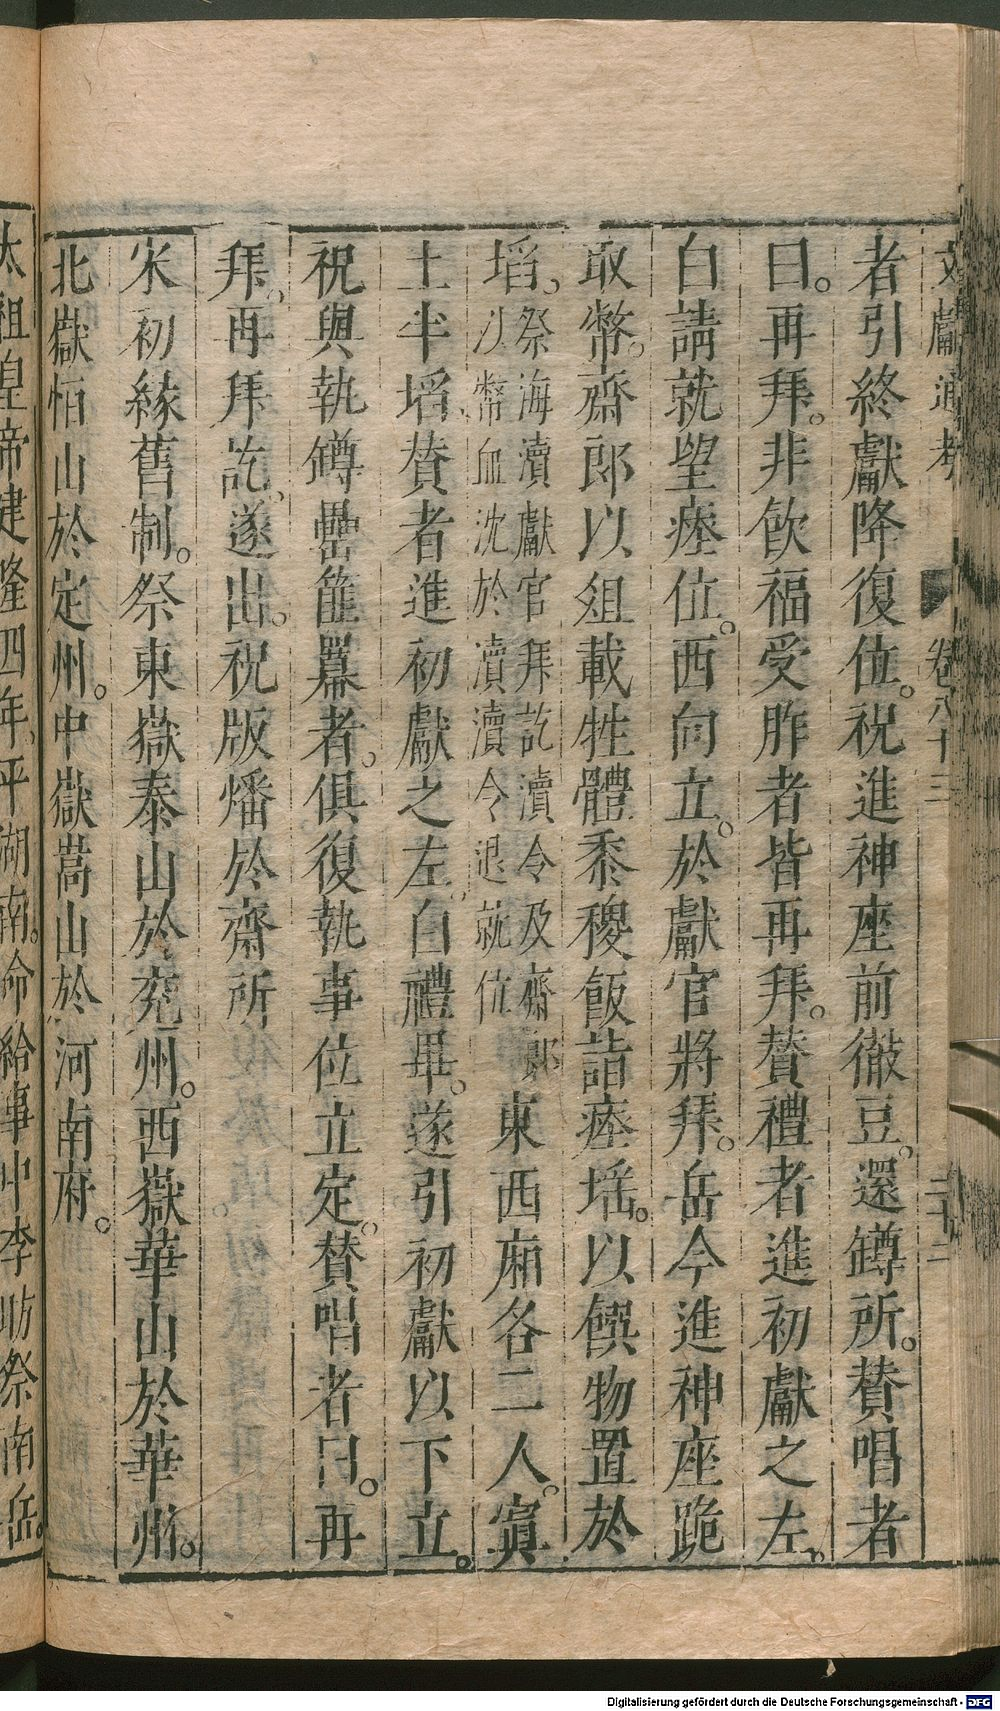 文獻通考 卷八十三 二十二
者引終獻降復位。祝進神座前徹豆。還罇所。贊唱者
曰。再拜。非飲福受胙者皆再拜。贊禮者進初獻之左。
白請就望瘞位。西向立。於獻官將拜。岳令進神座跪
取幣。齋郎以俎載牲體黍稷飯詣瘞埳。以饌物置於
埳。祭海瀆獻官拜訖瀆令及齋郎以幣血沈於瀆瀆令退就位東西廂各二人。寘
土半埳、贊者進初獻之左。白禮畢。遂引初獻以下立。
祝與執罇罍篚羃者。俱復執事位立定。贊唱者曰。再
拜。再拜訖。遂出。祝版燔於齋所
宋初緣舊制。祭東嶽泰山於兖州。西嶽華山於華州。
北嶽恒山於定州。中嶽嵩山於河南府。
太祖皇帝建隆四年、平湖南。命給事中李昉祭南岳。
Digitalisierung gefördert durch die Deutsche Forschungsgemeinschaft - DFG